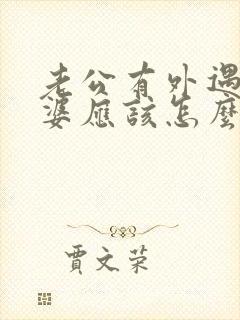 老公有外遇
婆應該怎麼
賈文荣